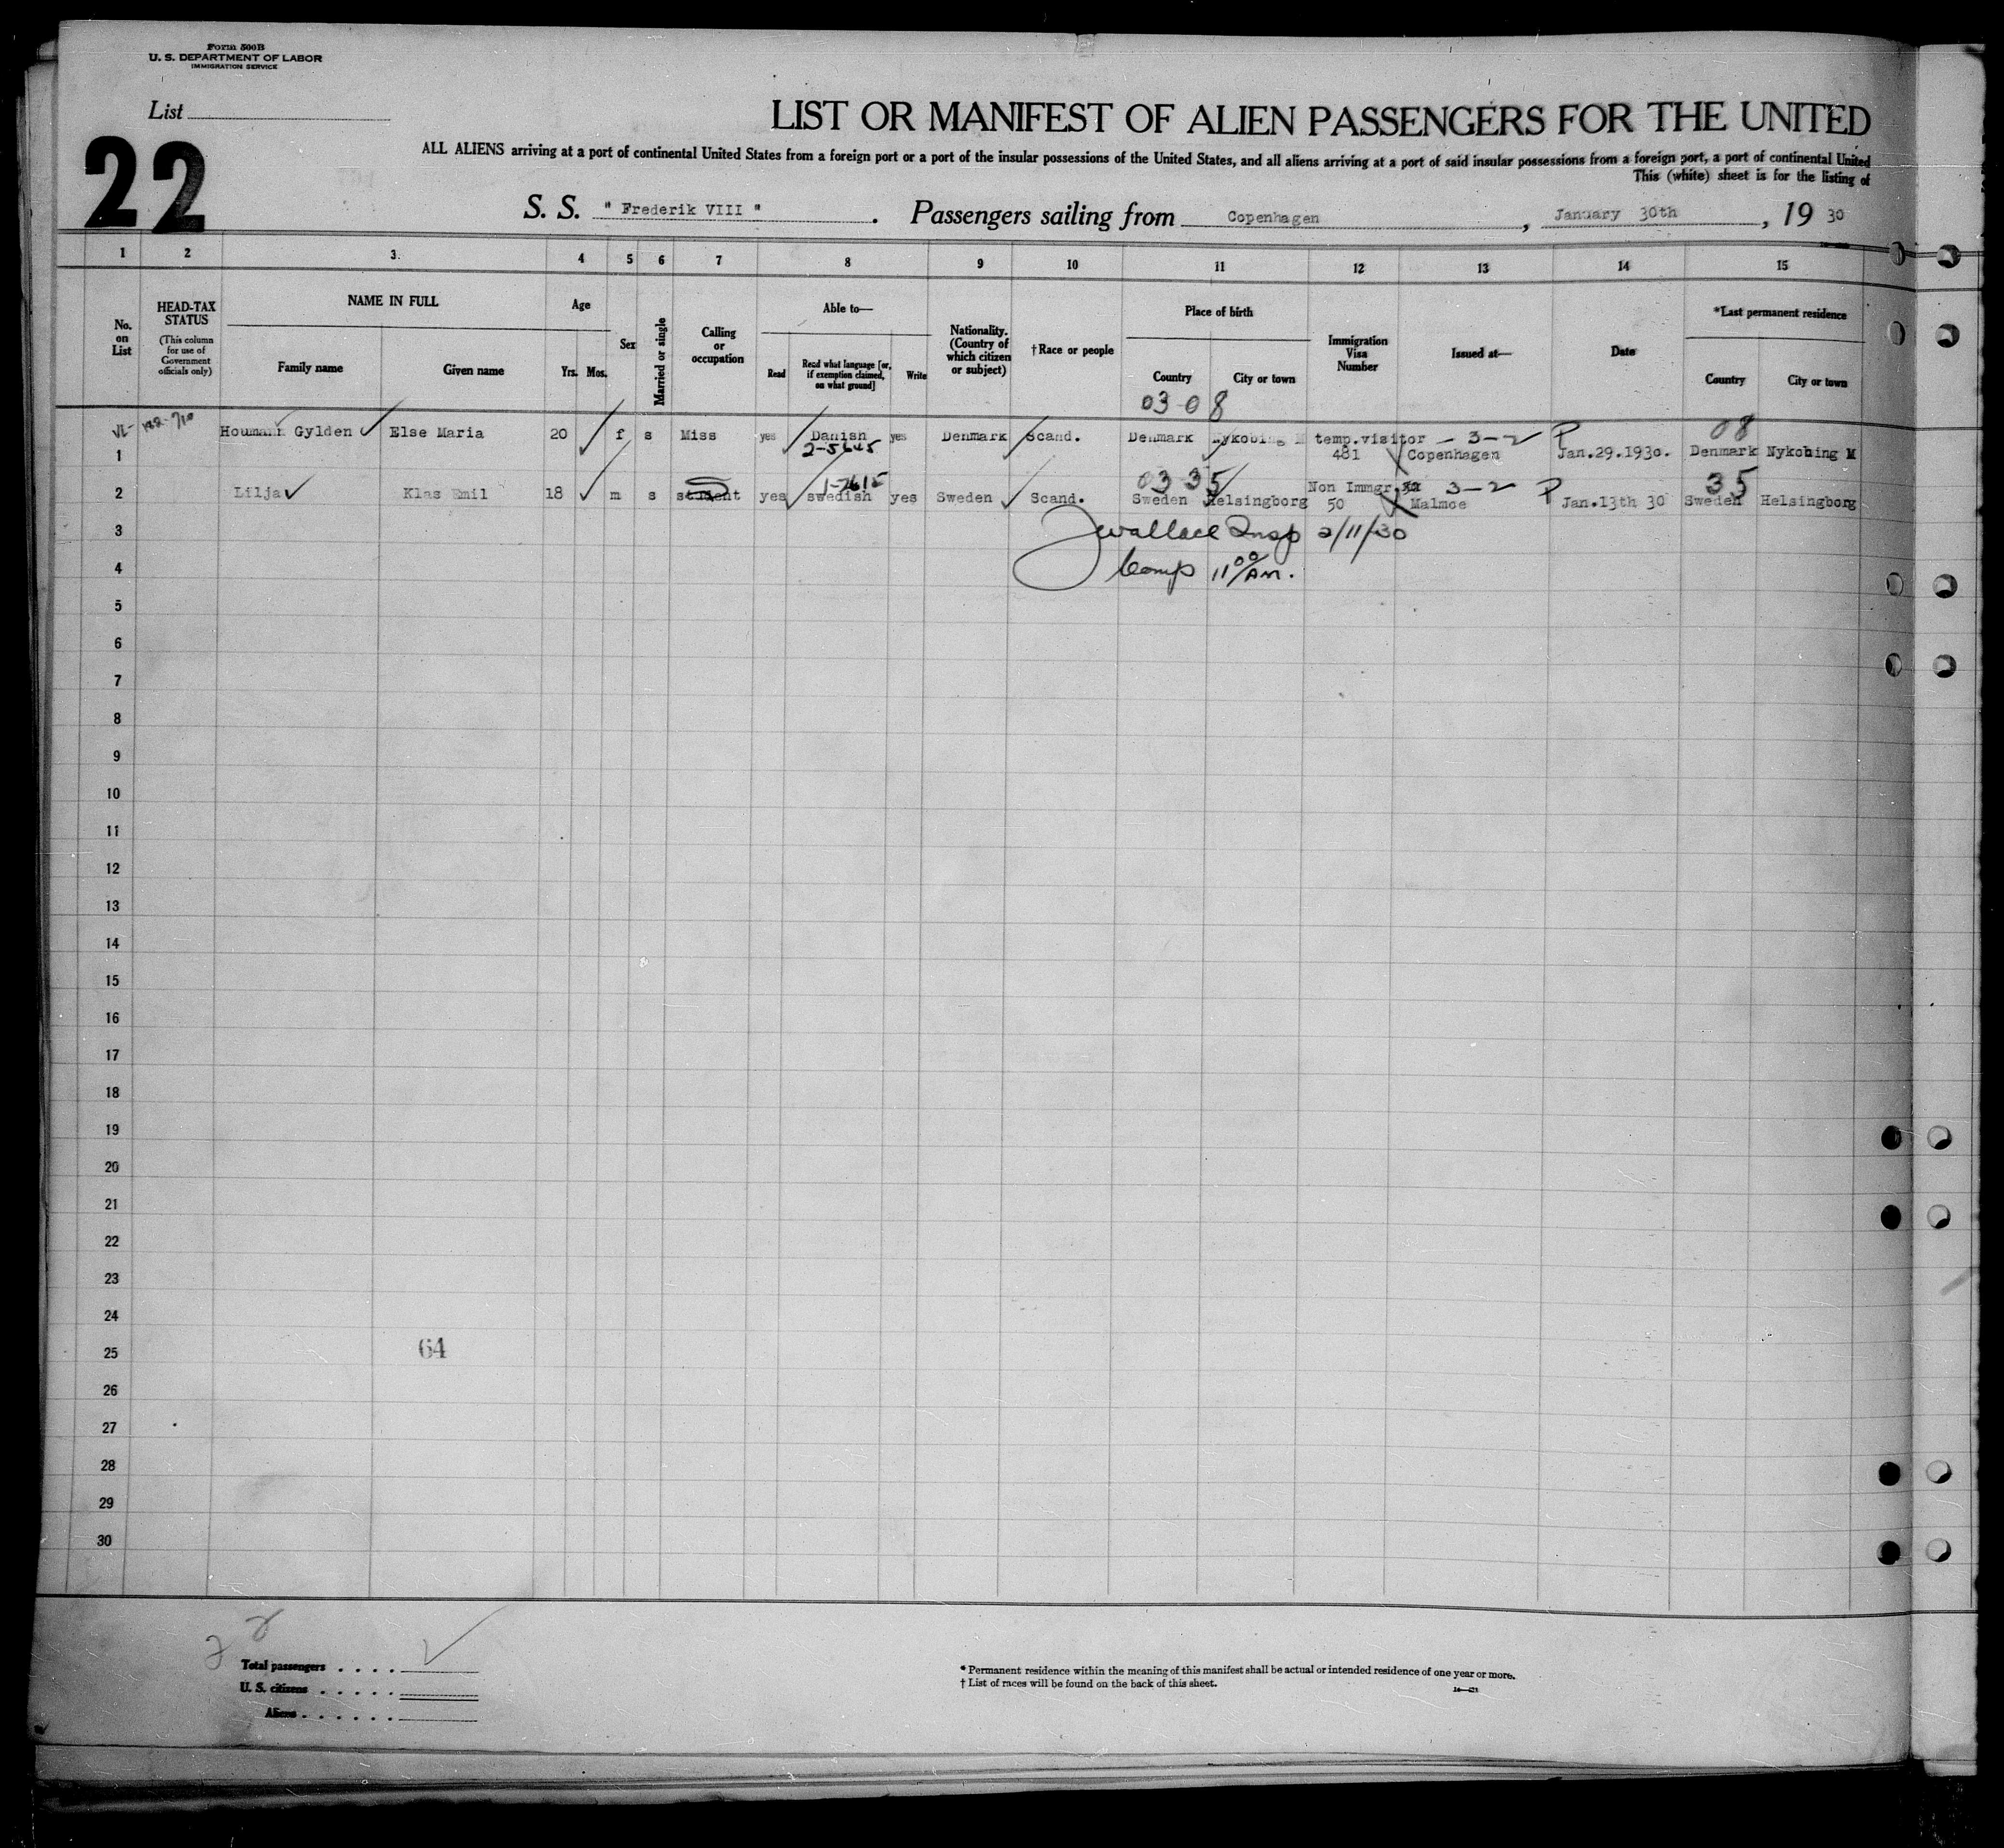 Form 500B
U. S. DEPARTMENT OF LABOR
IMMIGRATION SERVICE
List
22
LIST OR MANIFEST OF ALIEN PASSENGERS FOR THE UNITED
ALL ALIENS arriving at a port of continental United States from a foreign port or a port of the insular possessions of the United States, and all aliens arriving at a port of said insular possessions from a foreign port, a port of continental United
This (white) sheet is for the listing of
S. S. " Frederik VIII " . Passengers sailing from Copenhagen , January 30th , 19 30
1 2 3 4 5 6 7 8 9 10 11 12 13 14 15
No. on List
HEAD-TAX STATUS
(This column for use of Government officials only)
NAME IN FULL
Family name Given name
Age
Yrs. Mos.
Sex
Married or single
Calling or occupation
Able to—
Read Read what language [or, if exemption claimed, on what ground] Write
Nationality. (Country of which citizen or subject)
†Race or people
Place of birth
Country City or town
Immigration Visa Number
Issued at—
Date
*Last permanent residence
Country City or town
03 08
08
1 Houmann Gylden Else Maria 20 f s Miss yes Danish yes Denmark Scand. Denmark Nykobing M temp.visitor 481 3-2 Copenhagen P Jan.29.1930. Denmark Nykobing M
2-5645
03 35
35
2 Lilja Klas Emil 18 m s student yes swedish yes Sweden Scand. Sweden Helsingborg Non Immgr. 50 3-2 Malmoe P Jan.13th 30 Sweden Helsingborg
3 Wallace Insp 2/11/30
4 Comp 11 00/AM.
5
6
7
8
9
10
11
12
13
14
15
16
17
18
19
20
21
22
23
24
25 64
26
27
28
29
30
Total passengers
U. S. citizens
Aliens
* Permanent residence within the meaning of this manifest shall be actual or intended residence of one year or more.
† List of races will be found on the back of this sheet.